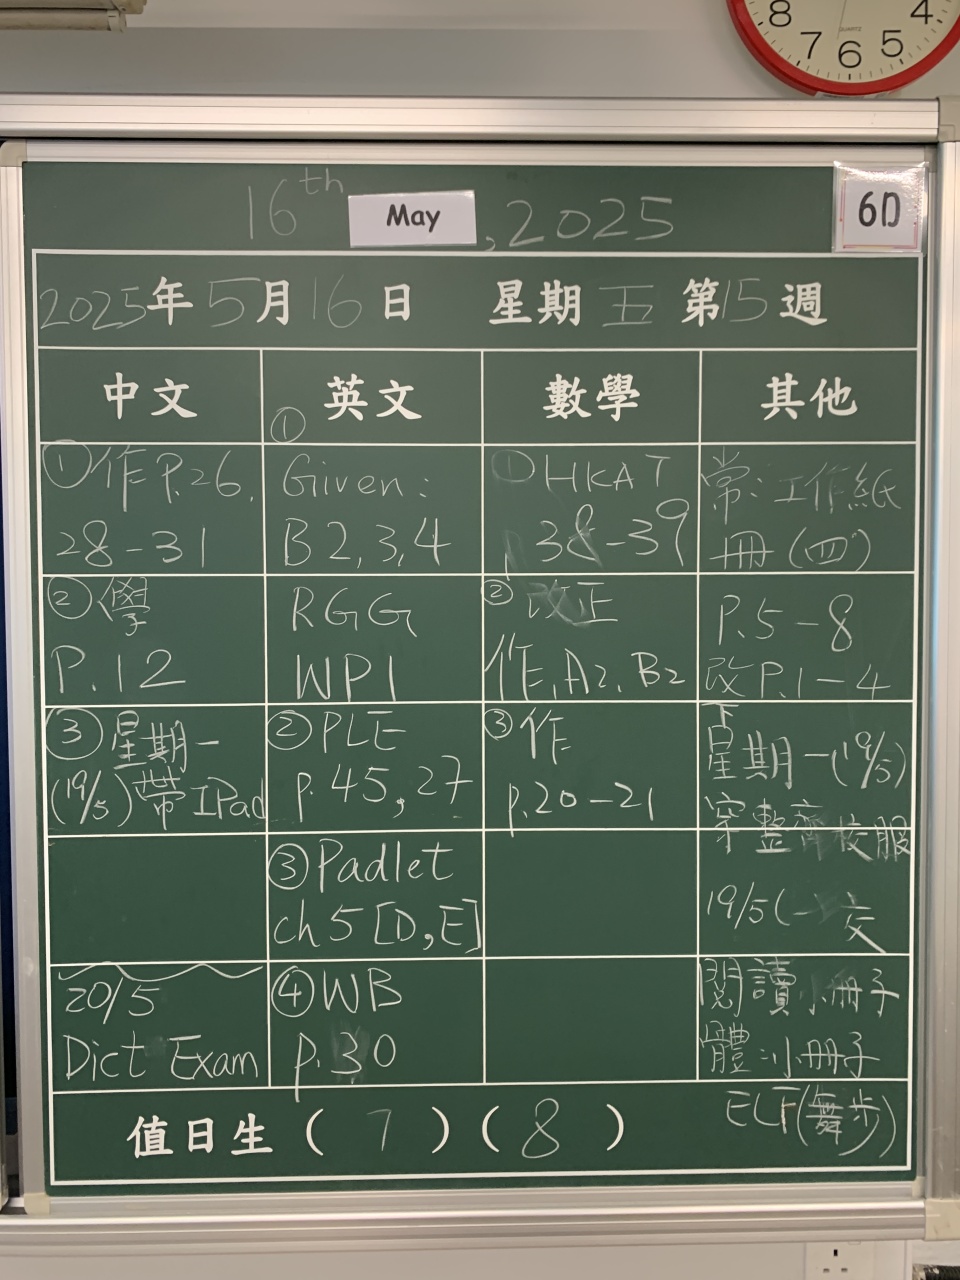 8 7 6 5 4
QUARTZ
16th May, 2025
6D
2025年5月16日 星期五 第15週
中文 英文 數學 其他
①作P.26,
28-31
②學
P.12
③星期一
(19/5)帶IPad
20/5
Dict Exam
①
Given:
B2,3,4
RGG
WP1
②PLE
p.45,27
③Padlet
ch5[D,E]
④WB
p.30
①HKAT
p.38-39
②改正
作,A2,B2
③作
p.20-21
常:工作紙
冊(四)
P.5-8
改P.1-4
星期一(19/5)
穿整齊校服
19/5(一)交
閱讀小冊子
體:小冊子
ELF(舞步)
值日生(7)(8)